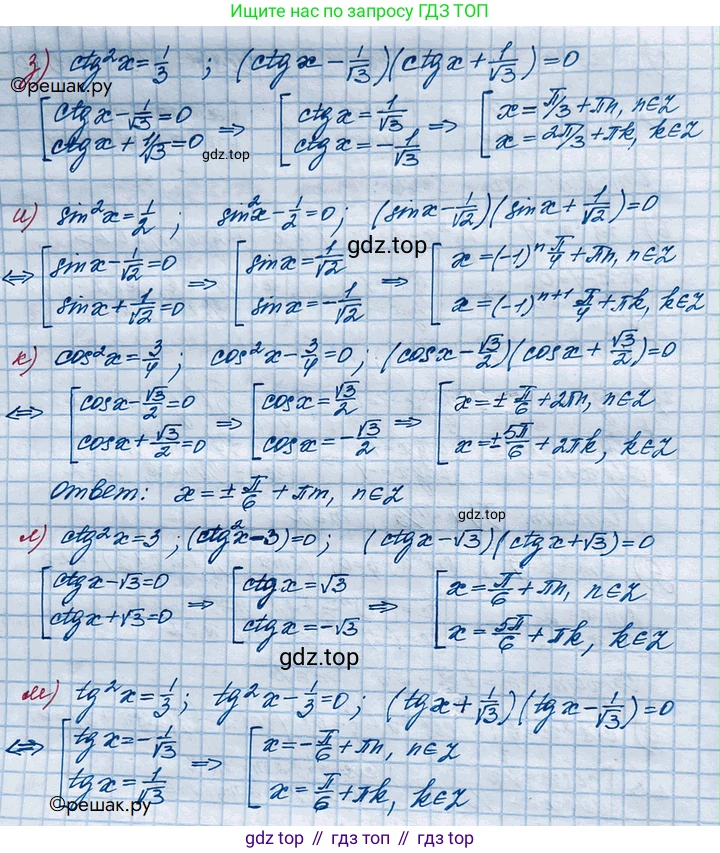 Ищите нас по запросу ГДЗ ТОП
з) ctg²x=1/3 ; (ctgx - 1/√3)(ctgx + 1/√3)=0
©решак.ру
[ctgx - 1/√3=0 ⇒ [ctgx = 1/√3 ⇒ [x = π/3 + πn, n∈Z
ctgx + 1/√3=0 ctgx = -1/√3 x = 2π/3 + πk, k∈Z
gdz.top
и) sin²x = 1/2 ; sin²x - 1/2 = 0 ; (sinx - 1/√2)(sinx + 1/√2)=0
gdz.top
⇔ [sinx - 1/√2=0 ⇒ [sinx = 1/√2 ⇒ [x = (-1)ⁿ π/4 + πn, n∈Z
sinx + 1/√2=0 sinx = -1/√2 x = (-1)ⁿ⁺¹ π/4 + πk, k∈Z
к) cos²x = 3/4 ; cos²x - 3/4 = 0 ; (cosx - √3/2)(cosx + √3/2)=0
⇔ [cosx - √3/2=0 ⇒ [cosx = √3/2 ⇒ [x = ± π/6 + 2πn, n∈Z
cosx + √3/2=0 cosx = -√3/2 x = ± 5π/6 + 2πk, k∈Z
ответ: x = ± π/6 + πm, n∈Z
gdz.top
л) ctg²x = 3 ; (ctg²x - 3)=0 ; (ctgx - √3)(ctgx + √3)=0
[ctgx - √3=0 ⇒ [ctgx = √3 ⇒ [x = π/6 + πn, n∈Z
ctgx + √3=0 ctgx = -√3 x = 5π/6 + πk, k∈Z
gdz.top
м) tg²x = 1/3 ; tg²x - 1/3 = 0 ; (tgx + 1/√3)(tgx - 1/√3)=0
⇔ [tgx = -1/√3 ⇒ [x = -π/6 + πn, n∈Z
tgx = 1/√3 x = π/6 + πk, k∈Z
©решак.ру
gdz top // гдз топ // гдз.top